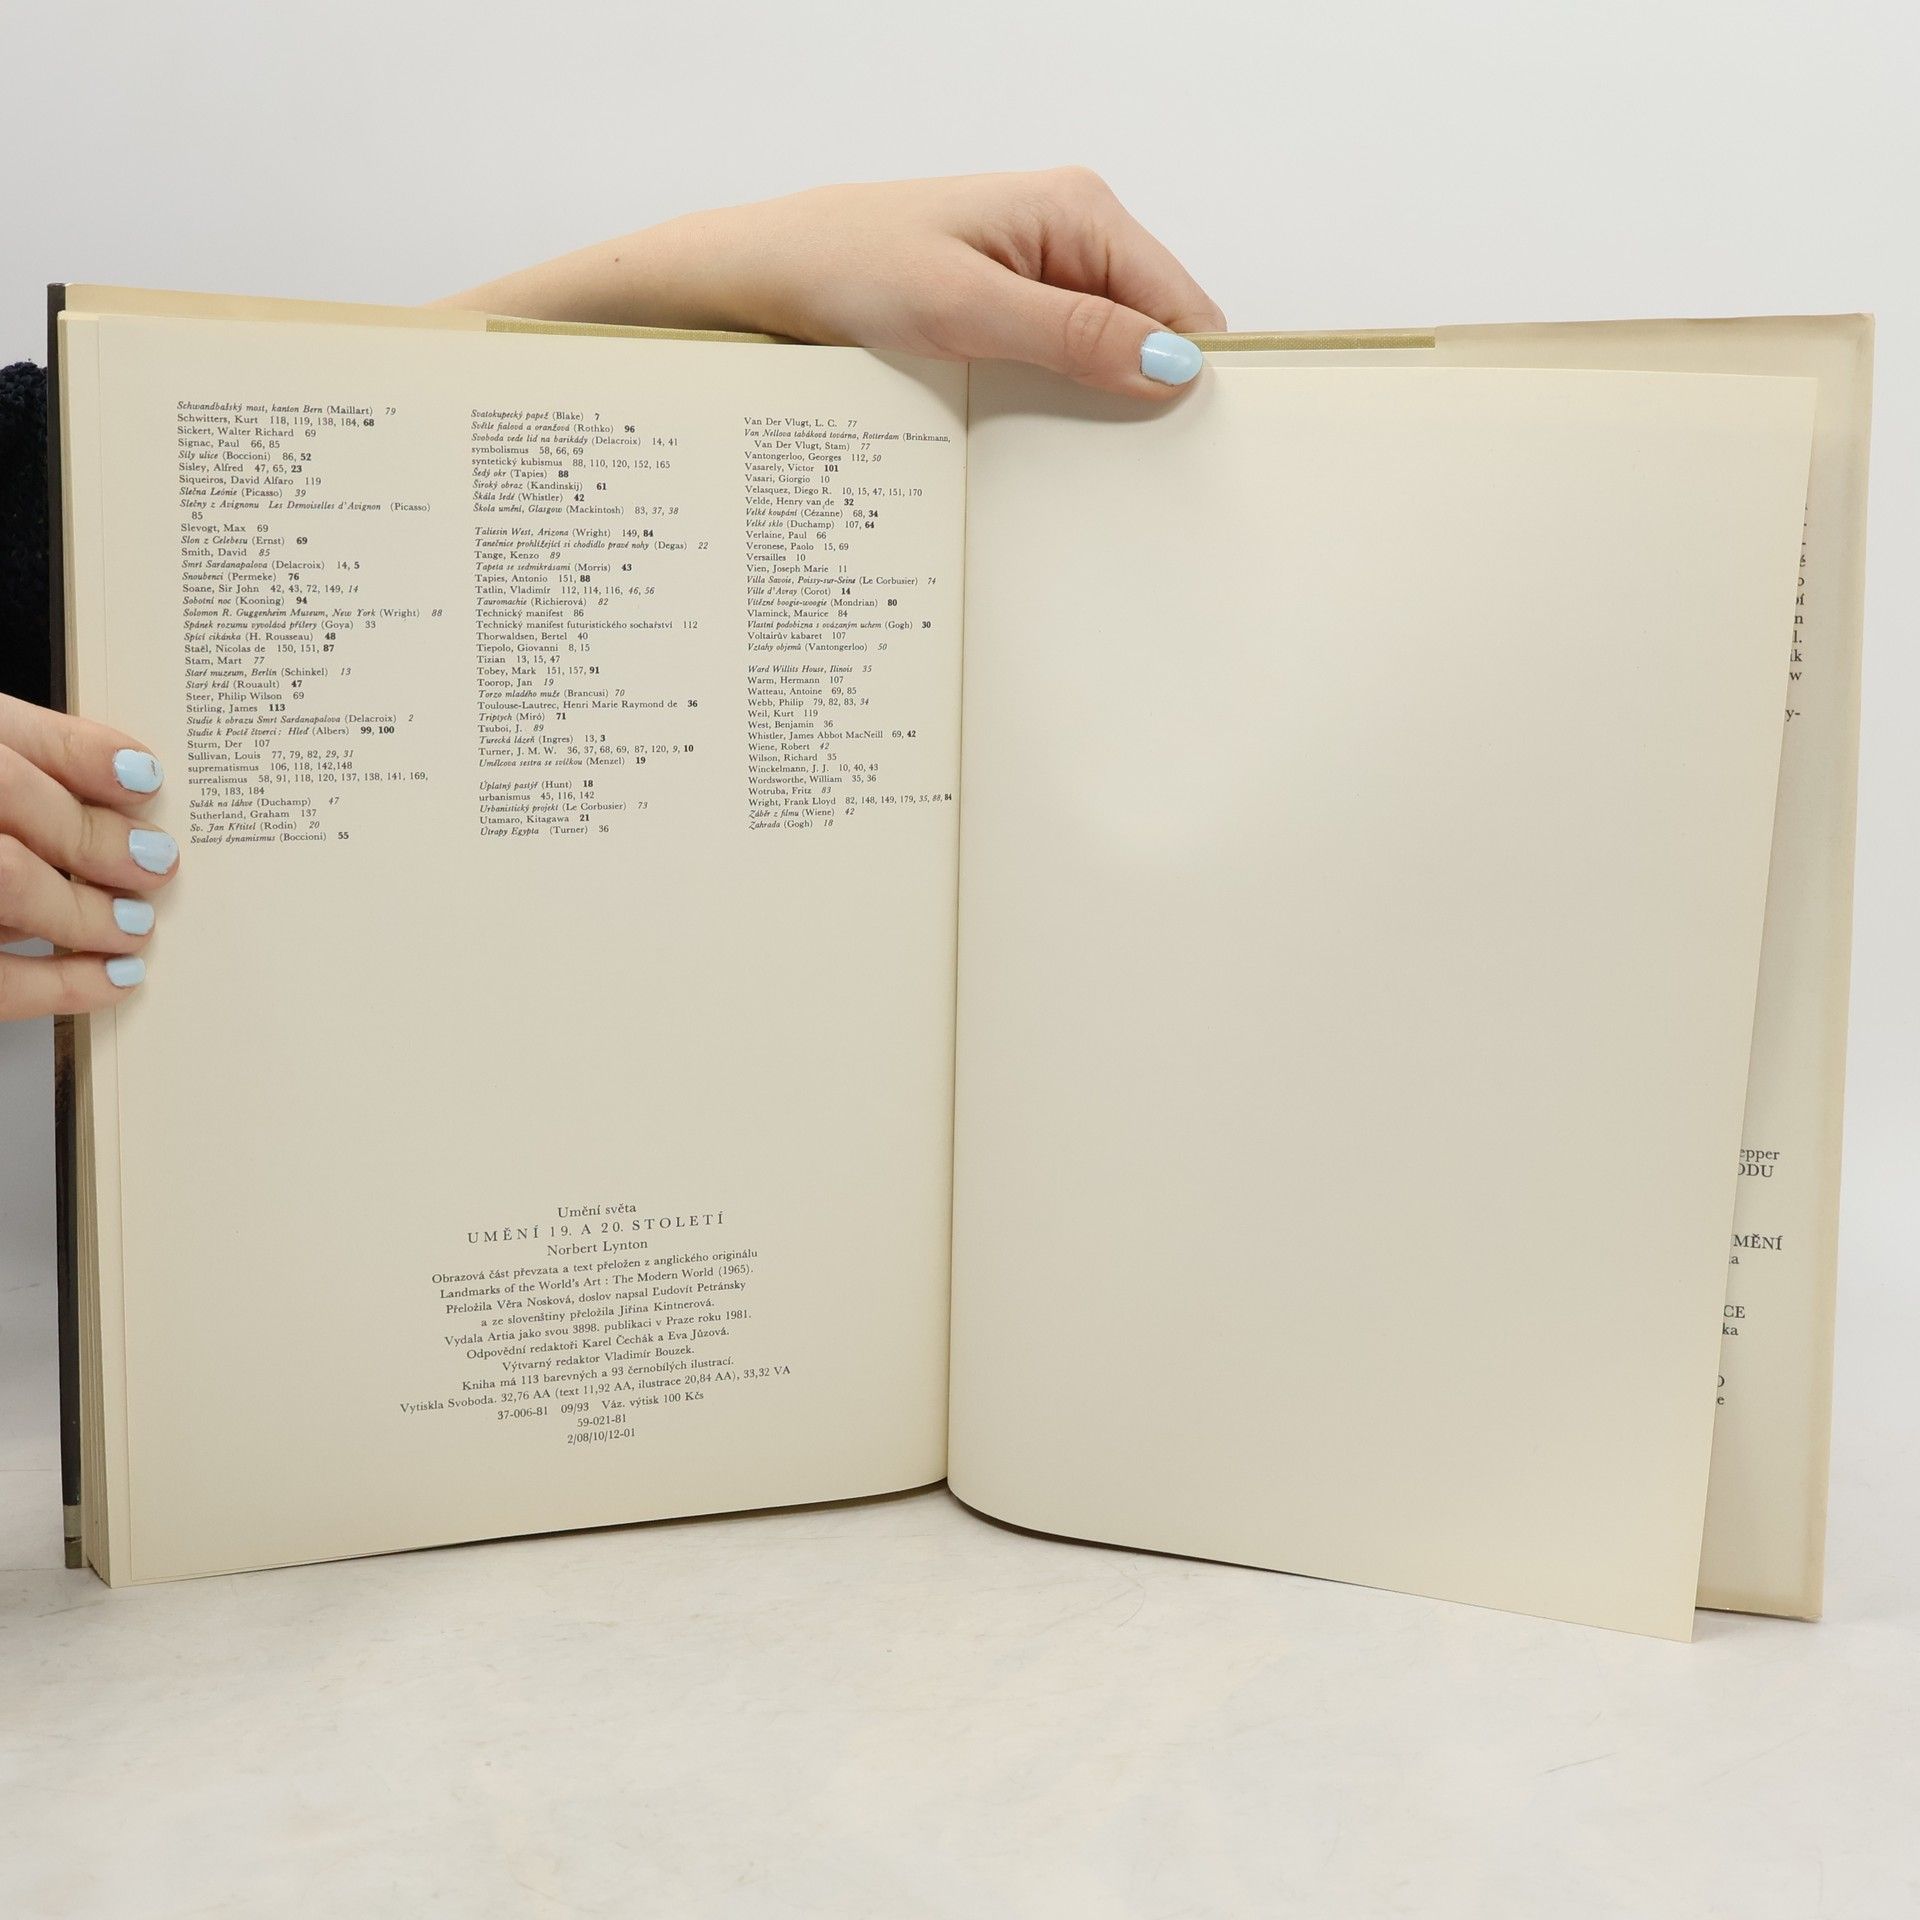 Schwandbašský most, kanton Bern (Maillart) 79
Schwitters, Kurt 118, 119, 138, 184, 68
Sickert, Walter Richard 69
Signac, Paul 66, 85
Síly ulice (Boccioni) 86, 52
Sisley, Alfred 47, 65, 23
Siqueiros, David Alfaro 119
Slečna Leónie (Picasso) 39
Slečny z Avignonu Les Demoiselles d'Avignon (Picasso)
85
Slevogt, Max 69
Slon z Celebesu (Ernst) 69
Smith, David 85
Smrt Sardanapalova (Delacroix) 14, 5
Snoubenci (Permeke) 76
Soane, Sir John 42, 43, 72, 149, 14
Sobotní noc (Kooning) 94
Solomon R. Guggenheim Museum, New York (Wright) 88
Spánek rozumu vyvolává příšery (Goya) 33
Spící cikánka (H. Rousseau) 48
Staël, Nicolas de 150, 151, 87
Stam, Mart 77
Staré muzeum, Berlín (Schinkel) 13
Starý král (Rouault) 47
Steer, Philip Wilson 69
Stirling, James 113
Studie k obrazu Smrt Sardanapalova (Delacroix) 2
Studie k Poctě čtverci: Hleď (Albers) 99, 100
Sturm, Der 107
Sullivan, Louis 77, 79, 82, 29, 31
suprematismus 106, 118, 142,148
surrealismus 58, 91, 118, 120, 137, 138, 141, 169,
179, 183, 184
Sušák na láhve (Duchamp) 47
Sutherland, Graham 137
Sv. Jan Křtitel (Rodin) 20
Svalový dynamismus (Boccioni) 55
Svatokupecký papež (Blake) 7
Světle fialová a oranžová (Rothko) 96
Svoboda vede lid na barikády (Delacroix) 14, 41
symbolismus 58, 66, 69
syntetický kubismus 88, 110, 120, 152, 165
Šedý okr (Tapies) 88
Široký obraz (Kandinskij) 61
Škála šedé (Whistler) 42
Škola umění, Glasgow (Mackintosh) 83, 37, 38
Taliesin West, Arizona (Wright) 149, 84
Tanečnice prohlížející si chodidlo pravé nohy (Degas) 22
Tange, Kenzo 89
Tapeta se sedmikrásami (Morris) 43
Tapies, Antonio 151, 88
Tatlin, Vladimír 112, 114, 116, 46, 56
Tauromachie (Richierová) 82
Technický manifest 86
Technický manifest futuristického sochařství 112
Thorwaldsen, Bertel 40
Tiepolo, Giovanni 8, 15
Tizian 13, 15, 47
Tobey, Mark 151, 157, 91
Toorop, Jan 19
Torzo mladého muže (Brancusi) 70
Toulouse-Lautrec, Henri Marie Raymond de 36
Triptych (Miró) 71
Tsuboi, J. 89
Turecká lázeň (Ingres) 13, 3
Turner, J. M. W. 36, 37, 68, 69, 87, 120, 9, 10
Umělcova sestra se svíčkou (Menzel) 19
Úplatný pastýř (Hunt) 18
urbanismus 45, 116, 142
Urbanistický projekt (Le Corbusier) 73
Utamaro, Kitagawa 21
Útrapy Egypta (Turner) 36
Van Der Vlugt, L. C. 77
Van Nellova tabáková továrna, Rotterdam (Brinkmann,
Van Der Vlugt, Stam) 77
Vantongerloo, Georges 112, 50
Vasarely, Victor 101
Vasari, Giorgio 10
Velasquez, Diego R. 10, 15, 47, 151, 170
Velde, Henry van de 32
Velké koupání (Cézanne) 68, 34
Velké sklo (Duchamp) 107, 64
Verlaine, Paul 66
Veronese, Paolo 15, 69
Versailles 10
Vien, Joseph Marie 11
Villa Savoie, Poissy-sur-Seine (Le Corbusier) 74
Ville d'Avray (Corot) 14
Vítězné boogie-woogie (Mondrian) 80
Vlaminck, Maurice 84
Vlastní podobizna s ovázaným uchem (Gogh) 30
Voltairův kabaret 107
Vztahy objemů (Vantongerloo) 50
Ward Willits House, Ilinois 35
Warm, Hermann 107
Watteau, Antoine 69, 85
Webb, Philip 79, 82, 83, 34
Weil, Kurt 119
West, Benjamin 36
Whistler, James Abbot MacNeill 69, 42
Wiene, Robert 42
Wilson, Richard 35
Winckelmann, J. J. 10, 40, 43
Wordsworthe, William 35, 36
Wotruba, Fritz 83
Wright, Frank Lloyd 82, 148, 149, 179, 35, 88, 84
Záběr z filmu (Wiene) 42
Zahrada (Gogh) 18
Umění světa
UMĚNÍ 19. A 20. STOLETÍ
Norbert Lynton
Obrazová část převzata a text přeložen z anglického originálu
Landmarks of the World's Art : The Modern World (1965).
Přeložila Věra Nosková, doslov napsal Ľudovít Petránsky
a ze slovenštiny přeložila Jiřina Kintnerová.
Vydala Artia jako svou 3898. publikaci v Praze roku 1981.
Odpovědní redaktoři Karel Čechák a Eva Jůzová.
Výtvarný redaktor Vladimír Bouzek.
Kniha má 113 barevných a 93 černobílých ilustrací.
Vytiskla Svoboda. 32,76 AA (text 11,92 AA, ilustrace 20,84 AA), 33,32 VA
37-006-81 09/93 Váz. výtisk 100 Kčs
59-021-81
2/08/10/12-01
epper
ODU
MĚNÍ
CE
ka